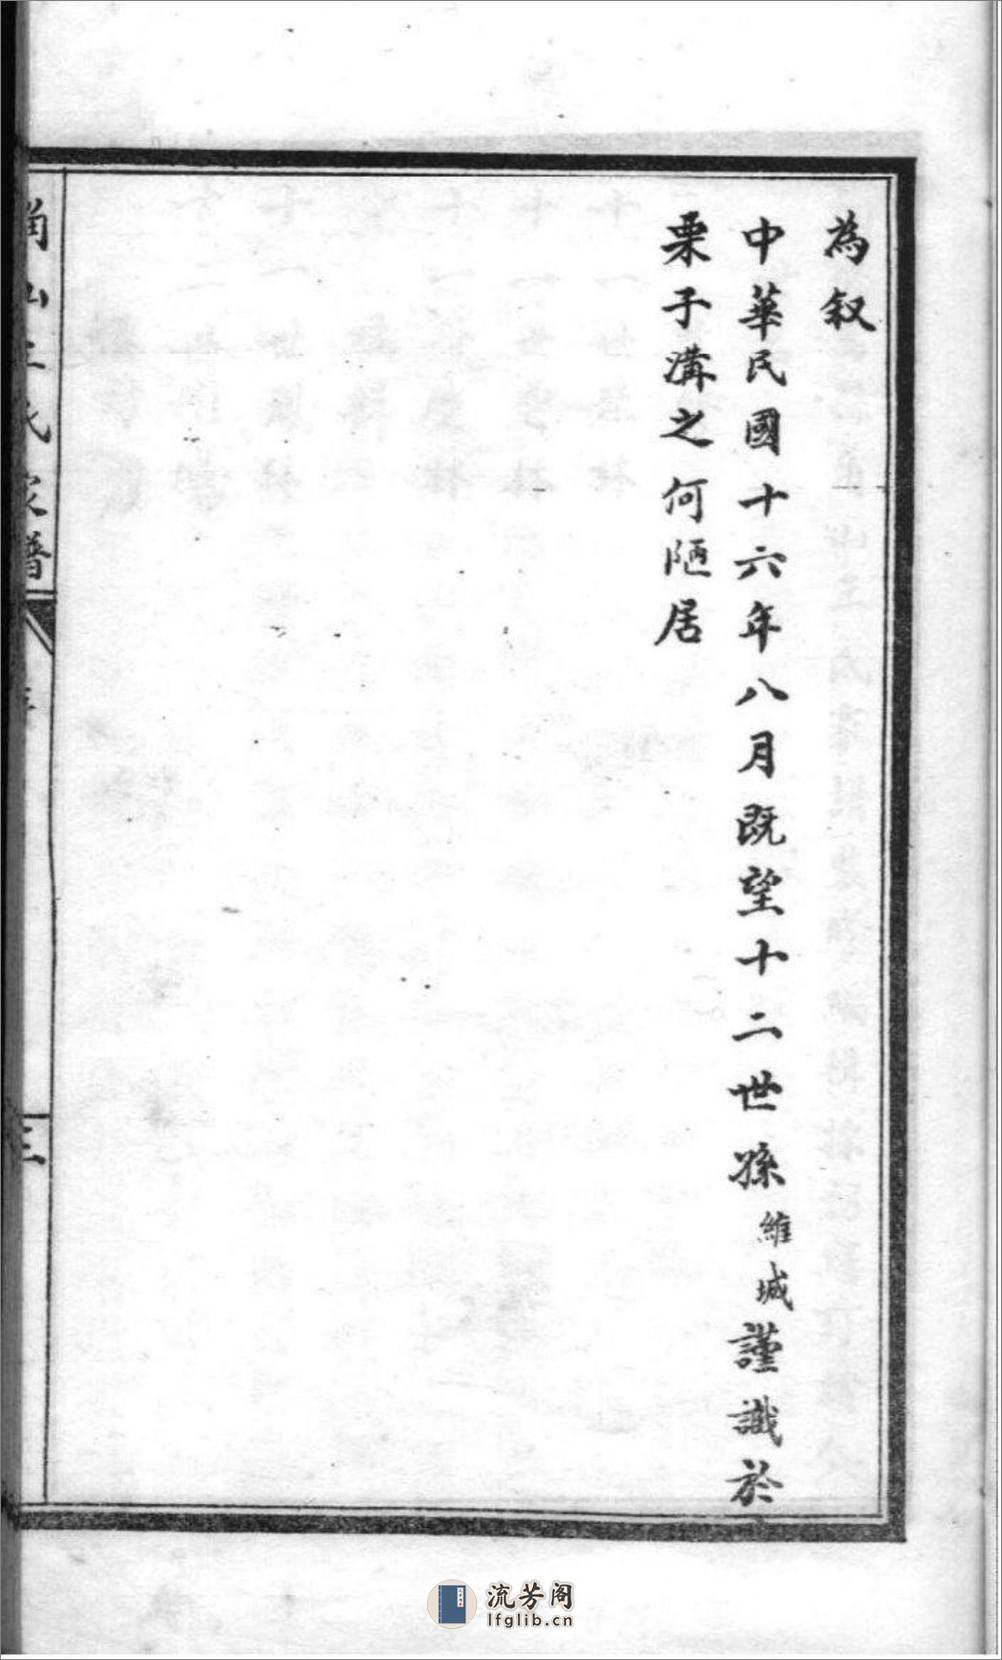 為叙
中華民國十六年八月既望十二世孫維城謹識於
栗子溝之何陋居
山王氏家譜
三
流芳阁
lfglib.cn